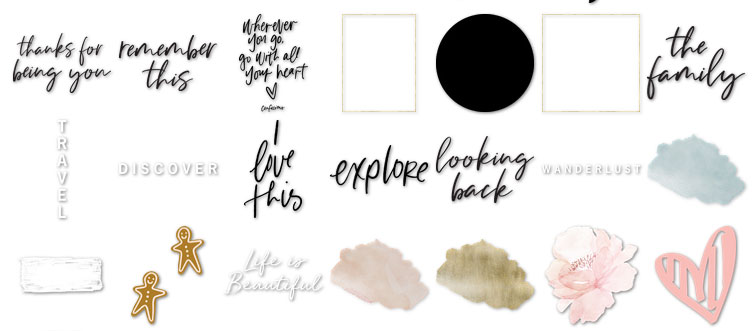 thanks for
being you
remember
this
wherever
you go,
go with all
your heart
Confucius
the
family
TRAVEL
DISCOVER
I
love
this
explore
looking
back
WANDERLUST
Life is
Beautiful